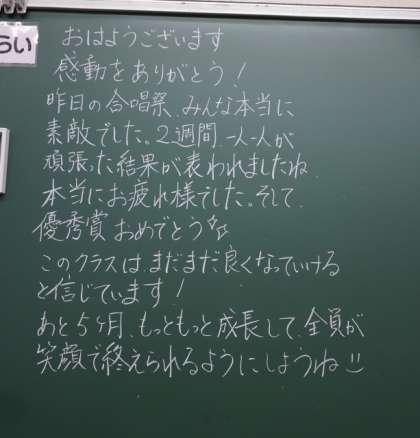 らい
おはようございます
感動をありがとう！
昨日の合唱祭、みんな本当に
素敵でした。2週間、一人一人が
頑張った結果が表われましたね
本当にお疲れ様でした。そして、
優秀賞おめでとう✨
このクラスは、まだまだ良くなっていける
と信じています！
あと5ヶ月、もっともっと成長して、全員が
笑顔で終えられるようにしようね